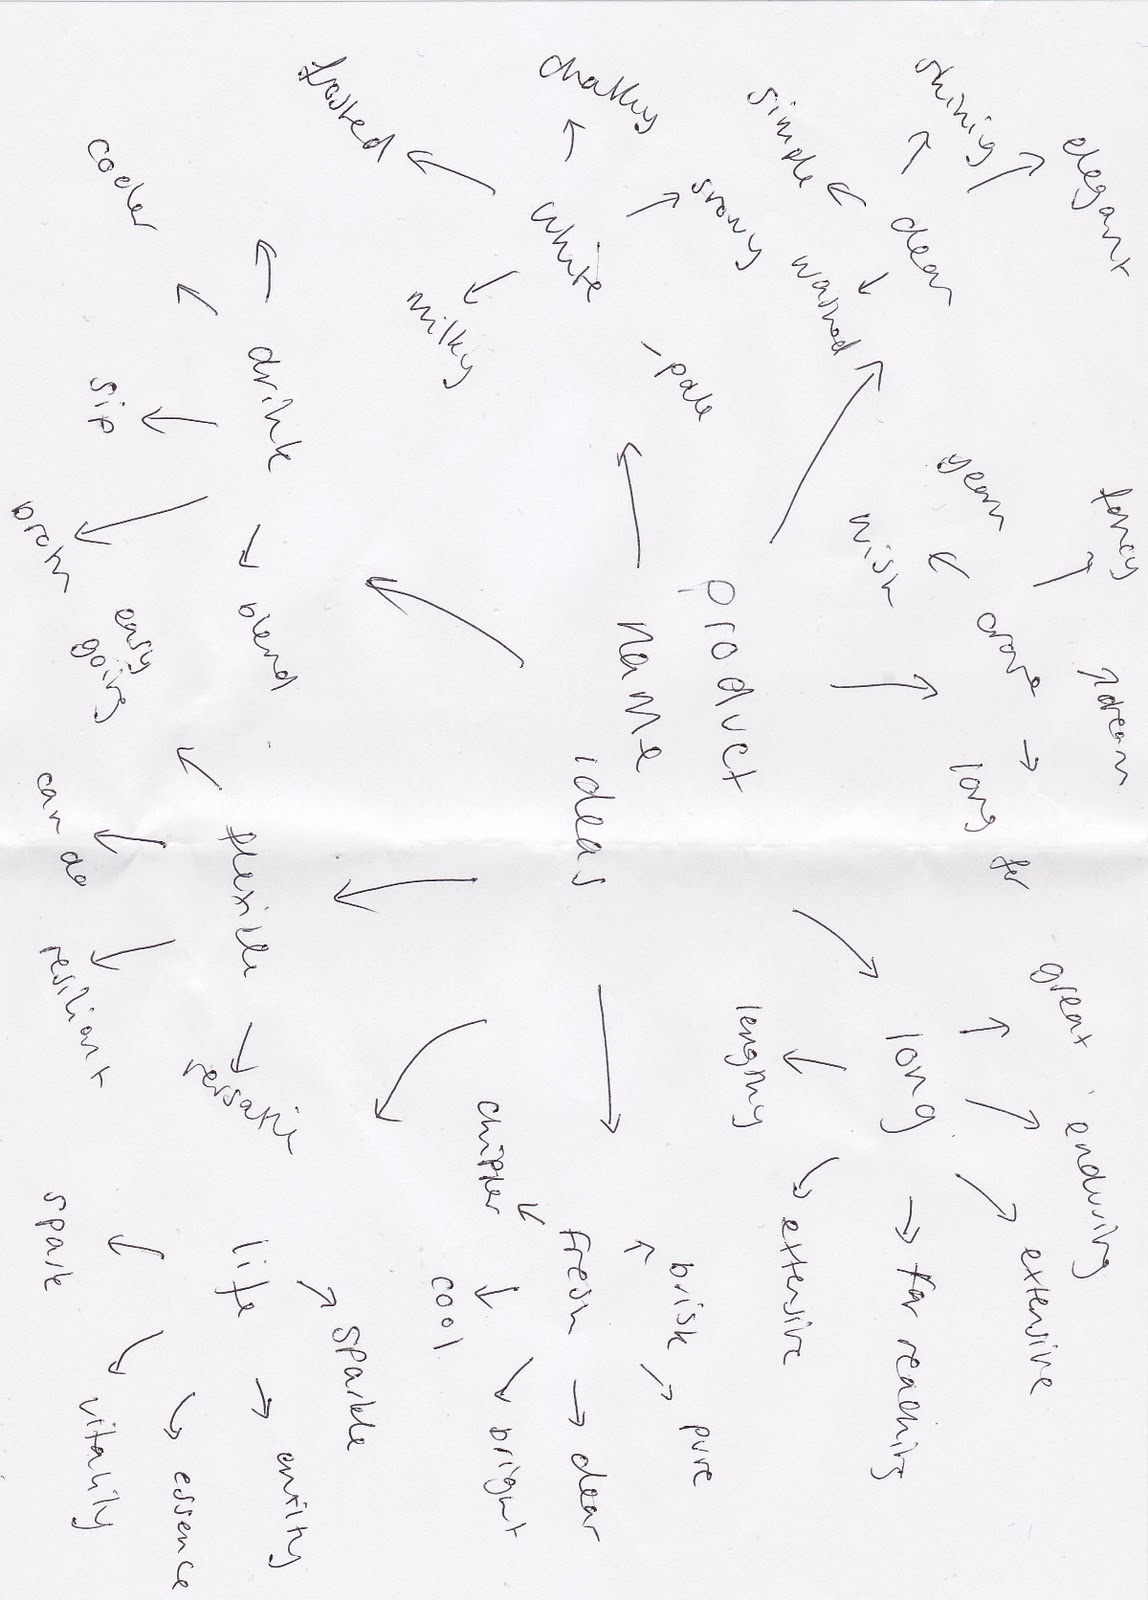 product
name
ideas
white
frosted
chalky
snowy
milky
- pale
clean
simple
shiniy
elegant
washed
crave
yearn
wish
fancy
dream
long for
long
great
enduring
extensive
far reaching
extensive
lengthy
fresh
brisk
pure
clear
bright
cool
chipper
life
sparkle
entity
essence
vitality
spark
flexible
versatile
resiliant
can do
easy
going
drink
cooler
sip
blend